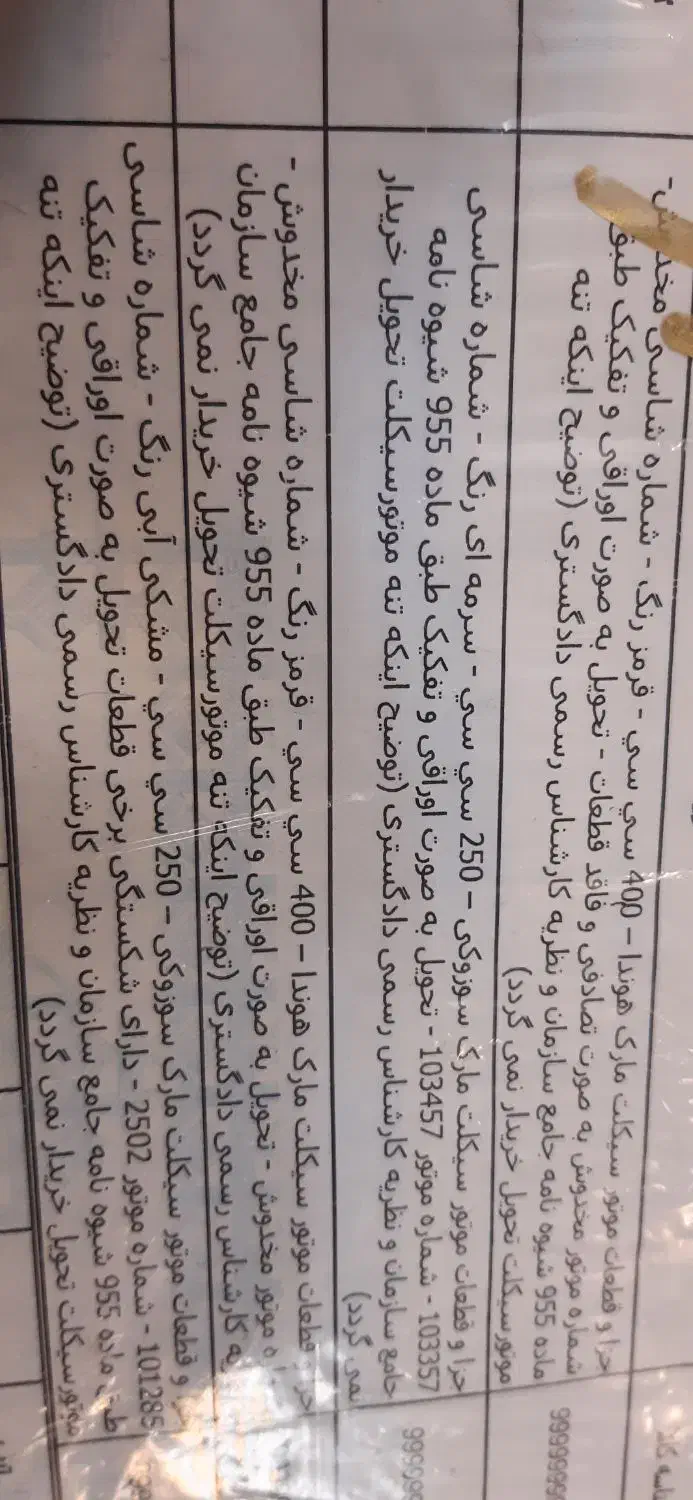 قطعات موتور سیکلت مارک هوندا – 400 سي سي - قرمز رنگ - شماره شاسی
شماره موتور مخدوش به صورت تصادفی و فاقد قطعات - تحویل به صورت اوراقی و تفکیک طبق
ماده 955 شیوه نامه جامع سازمان و نظریه کارشناس رسمی دادگستری (توضیح اینکه تنه
موتورسیکلت تحویل خریدار نمی گردد)
و قطعات موتور سیکلت مارک سوزوکی – 250 سي سي - سرمه ای رنگ - شماره شاسی
103357 - شماره موتور 103457 - تحویل به صورت اوراقی و تفکیک طبق ماده 955 شیوه نامه
جامع سازمان و نظریه کارشناس رسمی دادگستری (توضیح اینکه تنه موتورسیکلت تحویل خریدار
نمی گردد)
قطعات موتور سیکلت مارک هوندا – 400 سي سي - قرمز رنگ - شماره شاسی مخدوش -
موتور مخدوش - تحویل به صورت اوراقی و تفکیک طبق ماده 955 شیوه نامه جامع سازمان
کارشناس رسمی دادگستری (توضیح اینکه تنه موتورسیکلت تحویل خریدار نمی گردد)
و قطعات موتور سیکلت مارک سوزوکی – 250 سي سي - مشکی آبی رنگ - شماره شاسی
101285 - شماره موتور 2502 - دارای شکستگی برخی قطعات تحویل به صورت اوراقی و تفکیک
طبق ماده 955 شیوه نامه جامع سازمان و نظریه کارشناس رسمی دادگستری (توضیح اینکه تنه
موتورسیکلت تحویل خریدار نمی گردد)